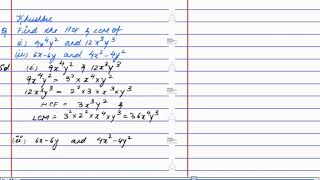 Khushbu
Q Find the HCF & LCM of
ii) 9x⁴y² and 12x³y³
(iii) 6x-6y and 4x²-4y²
Sol (i) 9x⁴y² & 12x³y³
9x⁴y² = 3² × x⁴ × y²
12x³y³ = 2² × 3 × x³ × y³
HCF = 3x³y² &
LCM = 3² × 2² × x⁴ × y³ = 36x⁴y³
ii) 6x-6y and 4x²-4y²